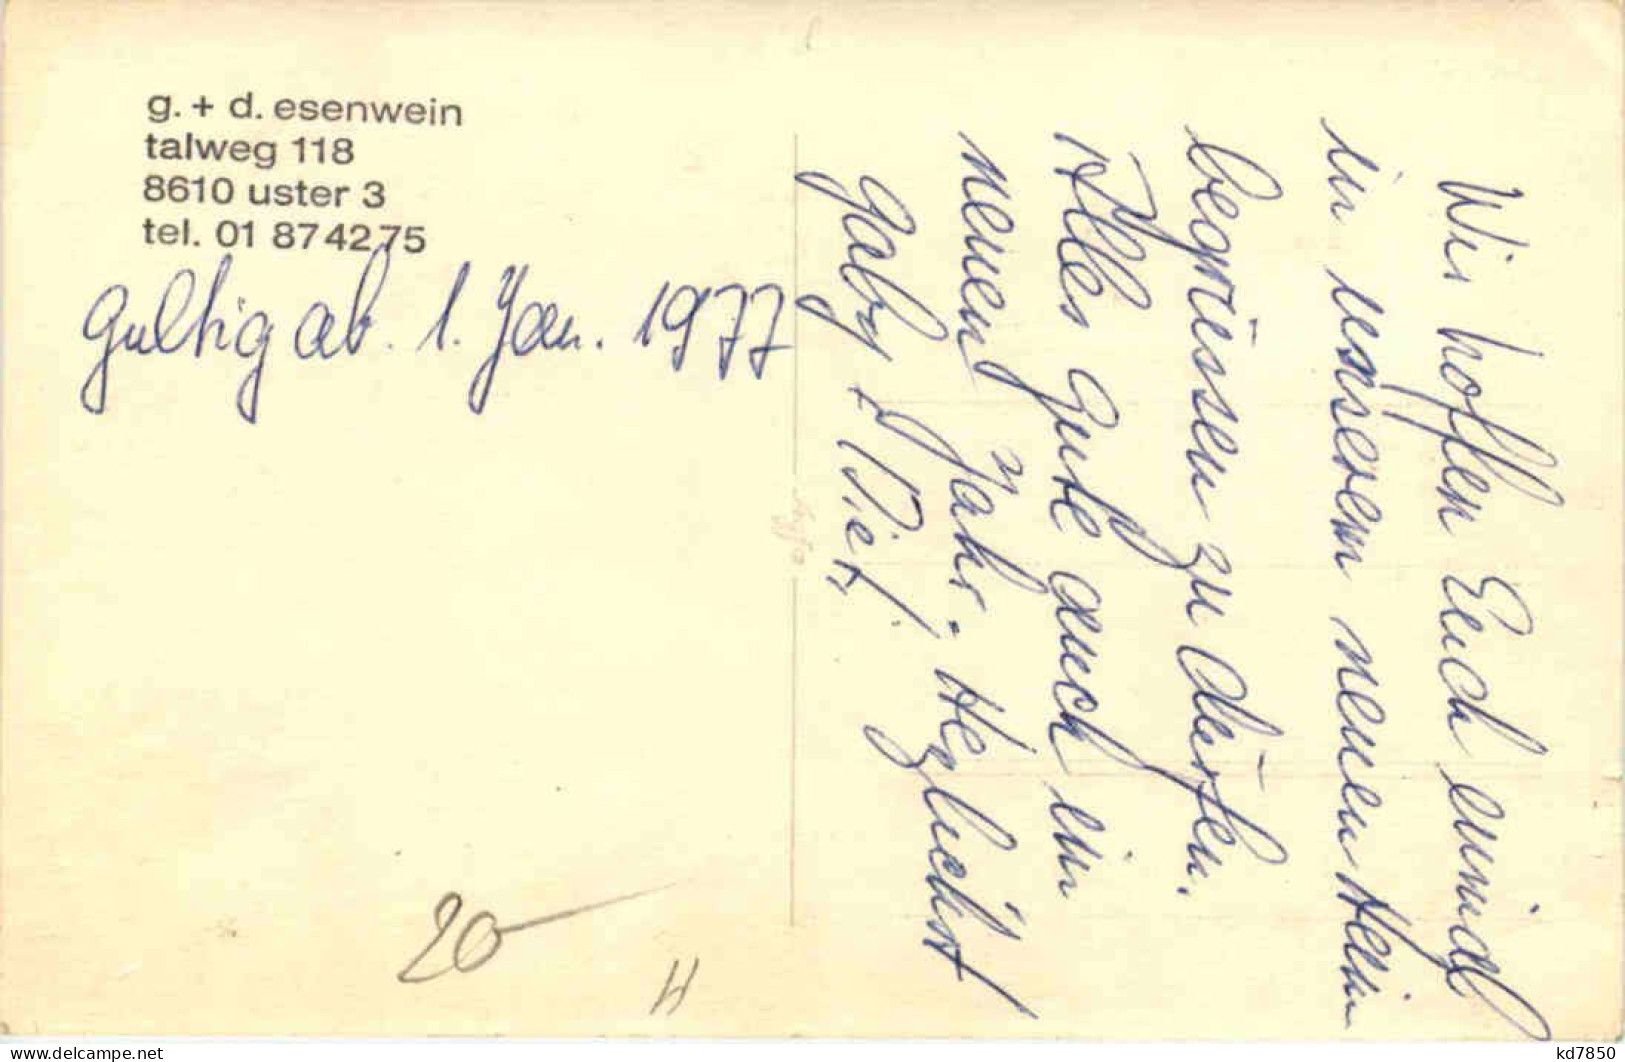 g. + d. esenwein
talweg 118
8610 uster 3
tel. 01 87 42 75
Gültig ab. 1. Jan. 1977
Wir hoffen Euch einmal
in unserem neuen Heim
begrüssen zu dürfen.
Alles Gute auch im
neuen Jahr. Herzlichst
Gaby + Diet.
Agfa
20
H
kd7850